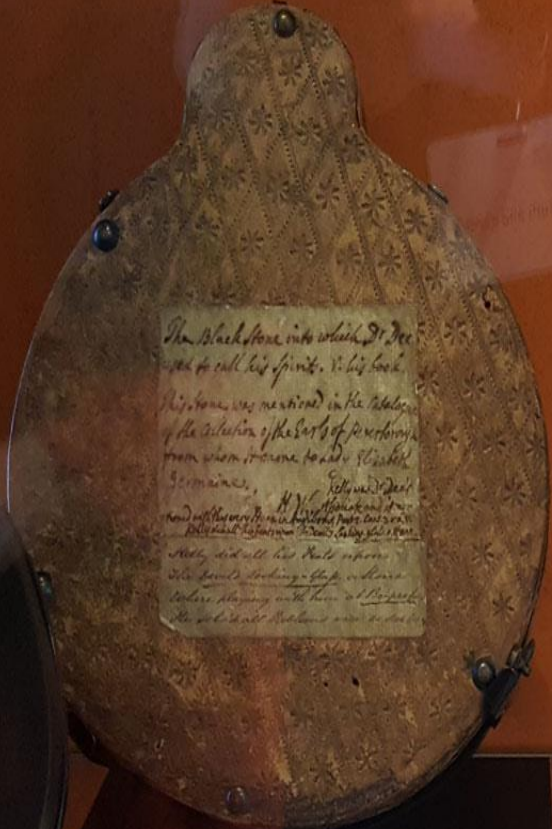 The Black Stone into which Dr Dee
used to call his Spirits. V. his book.
This Stone was mentioned in the Catalogue
of the Collection of the Earls of Peterborough
from whom it came to Lady Elizabeth
Germaine.
Kelly was Dr Dee's
H W. Associate and is
this very Stone in
Kelly did all his Feats upon
The Devil's Looking-Glass, a Stone
Where playing with him at Bo-peep
He solv'd all Problems ne'er so deep